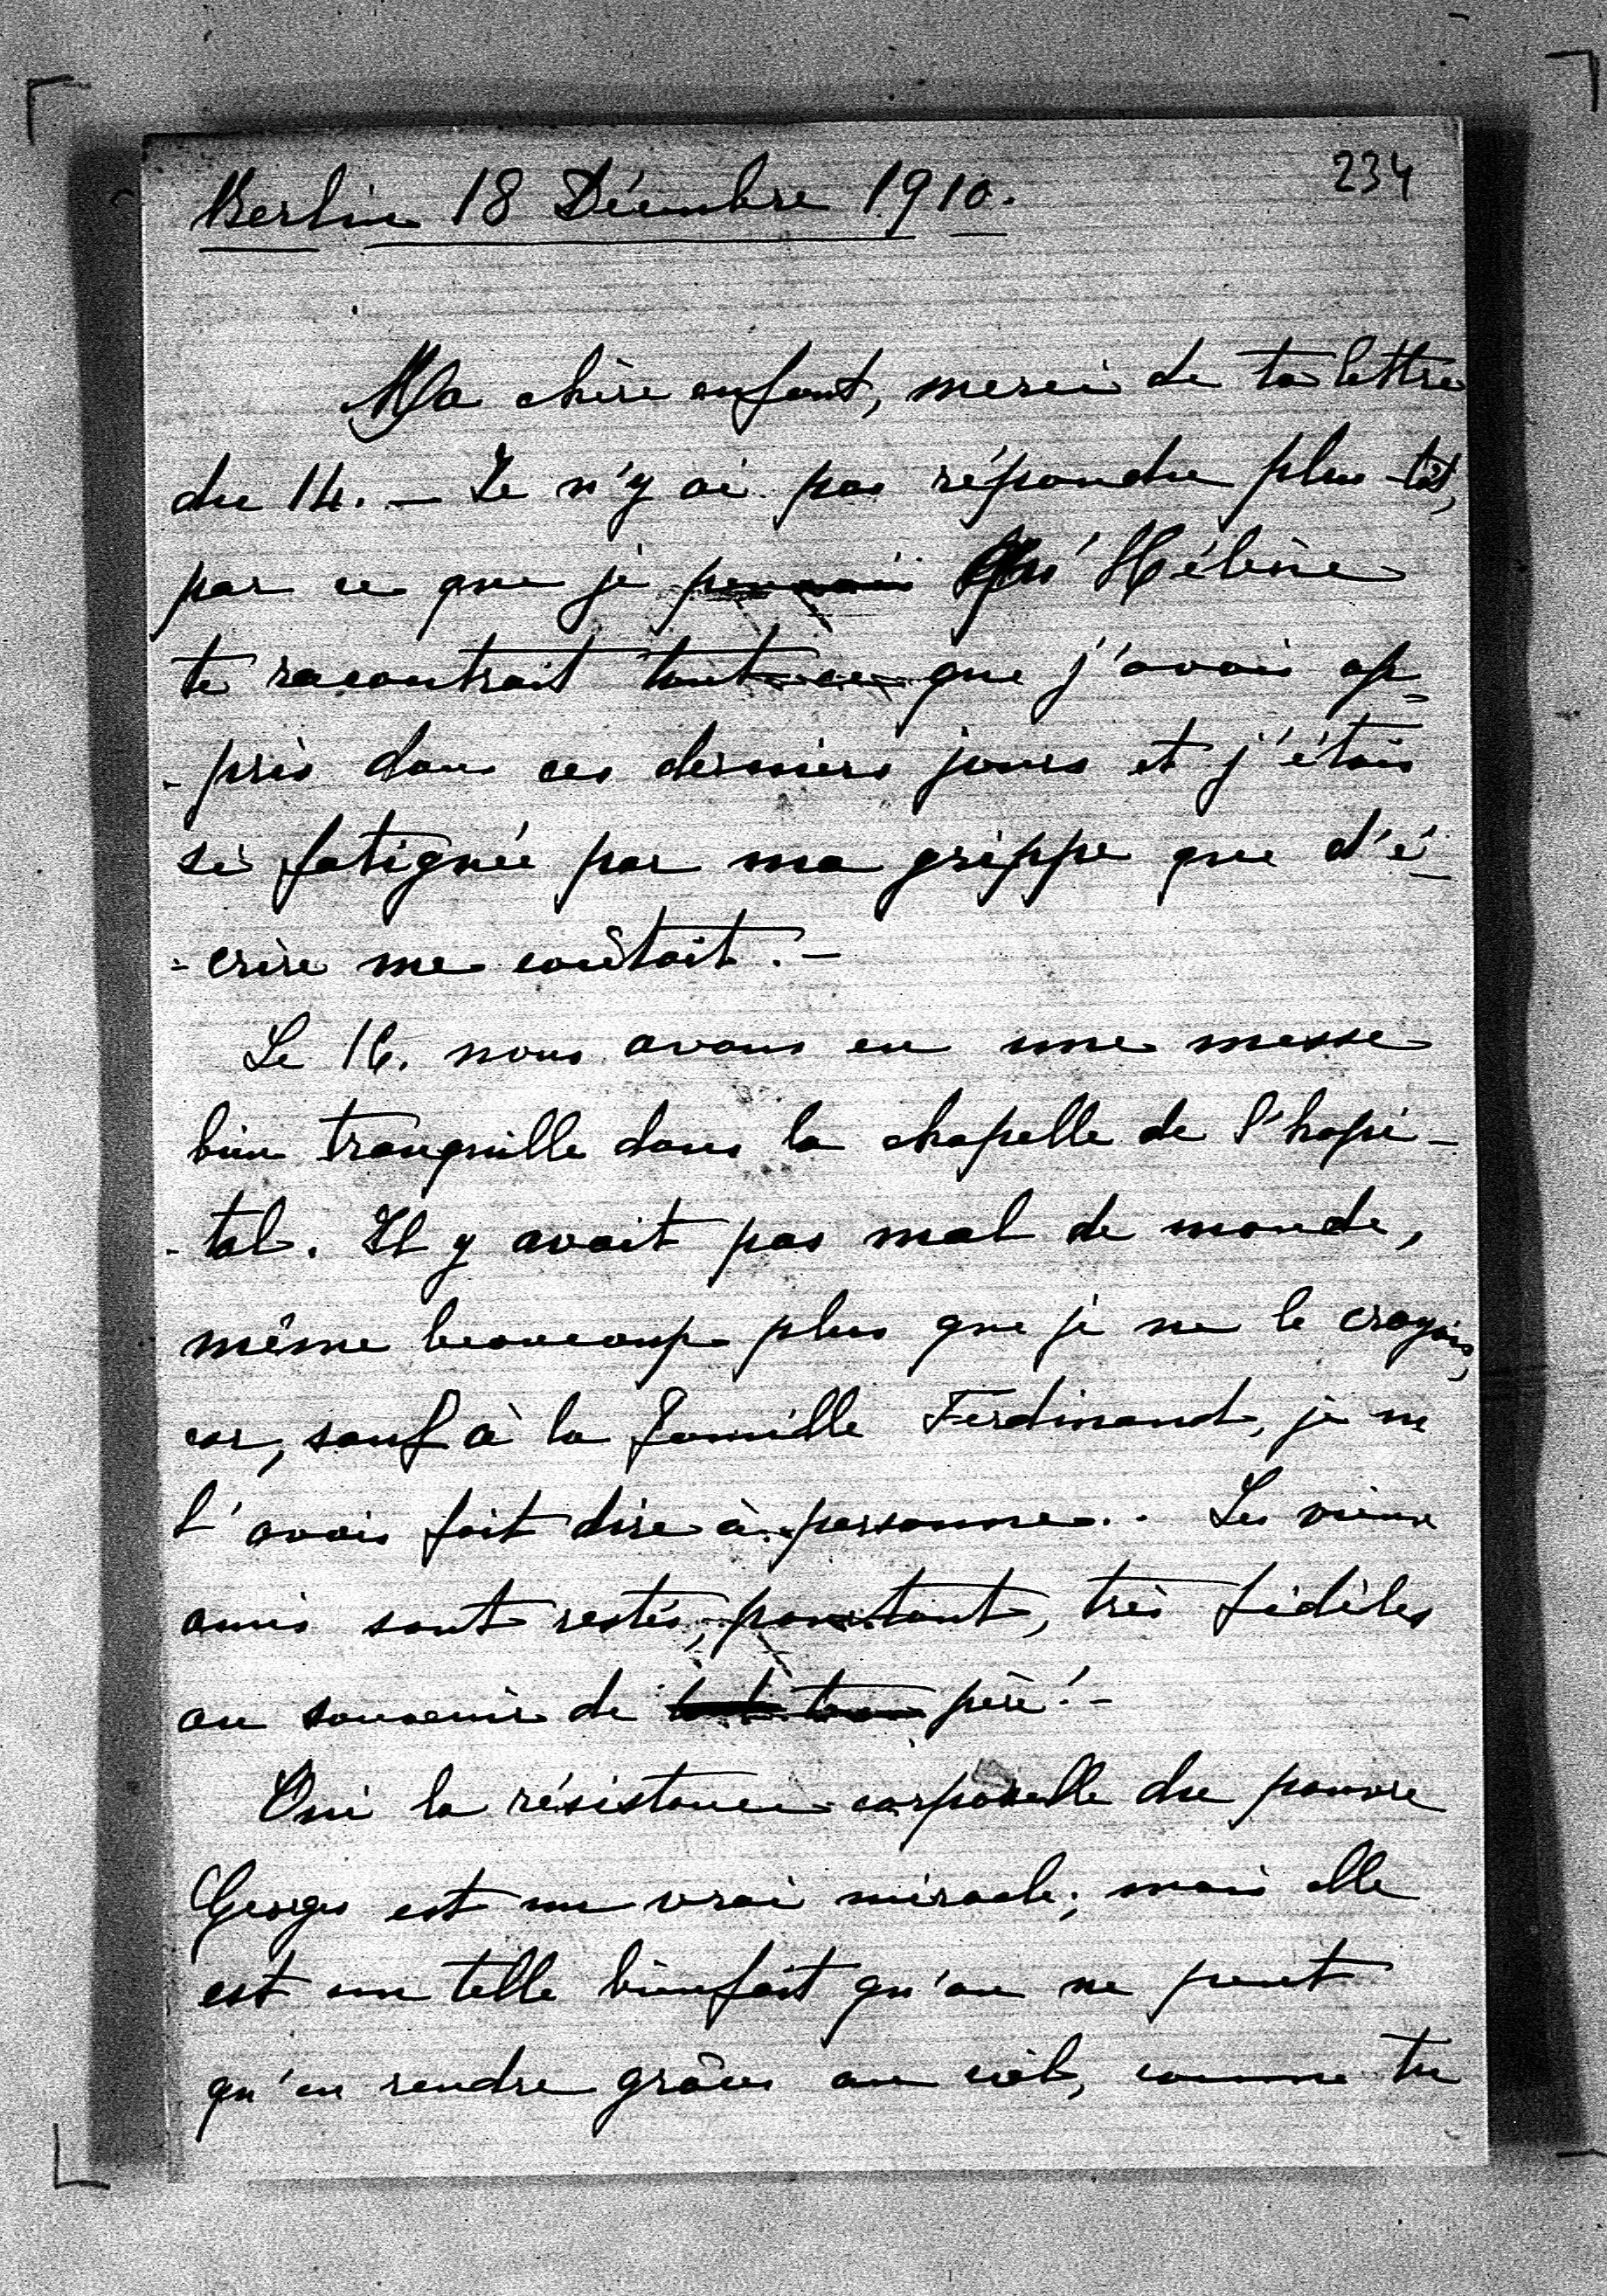 234
Berlin 18 Décembre 1910.
Ma chère enfant, merci de ta lettre
du 14. — Je n'y ai pas répondu plus tôt,
par ce que je pensais qu'Hélène
te racontrait tout ce que j'avais ap=
-pris dans ces derniers jours et j'étais
si fatiguée par ma grippe que d'é-
-crire me coûtait. —
Le 16. nous avons eu une messe
bien tranquille dans la chapelle de l'hopi-
-tal. Il y avait pas mal de monde,
même beaucoup plus que je ne le croyais,
car, sauf à la famille Ferdinand, je ne
l'avais fait dire à personne.. Les vieux
amis sont restés, pourtant, très fidèles
au souvenir de ton père! -
Oui la résistance corporelle du pauvre
Georges est un vrai miracle; mais elle
est un telle bienfait qu'on ne peut
qu'en rendre grâces au ciel, comme tu